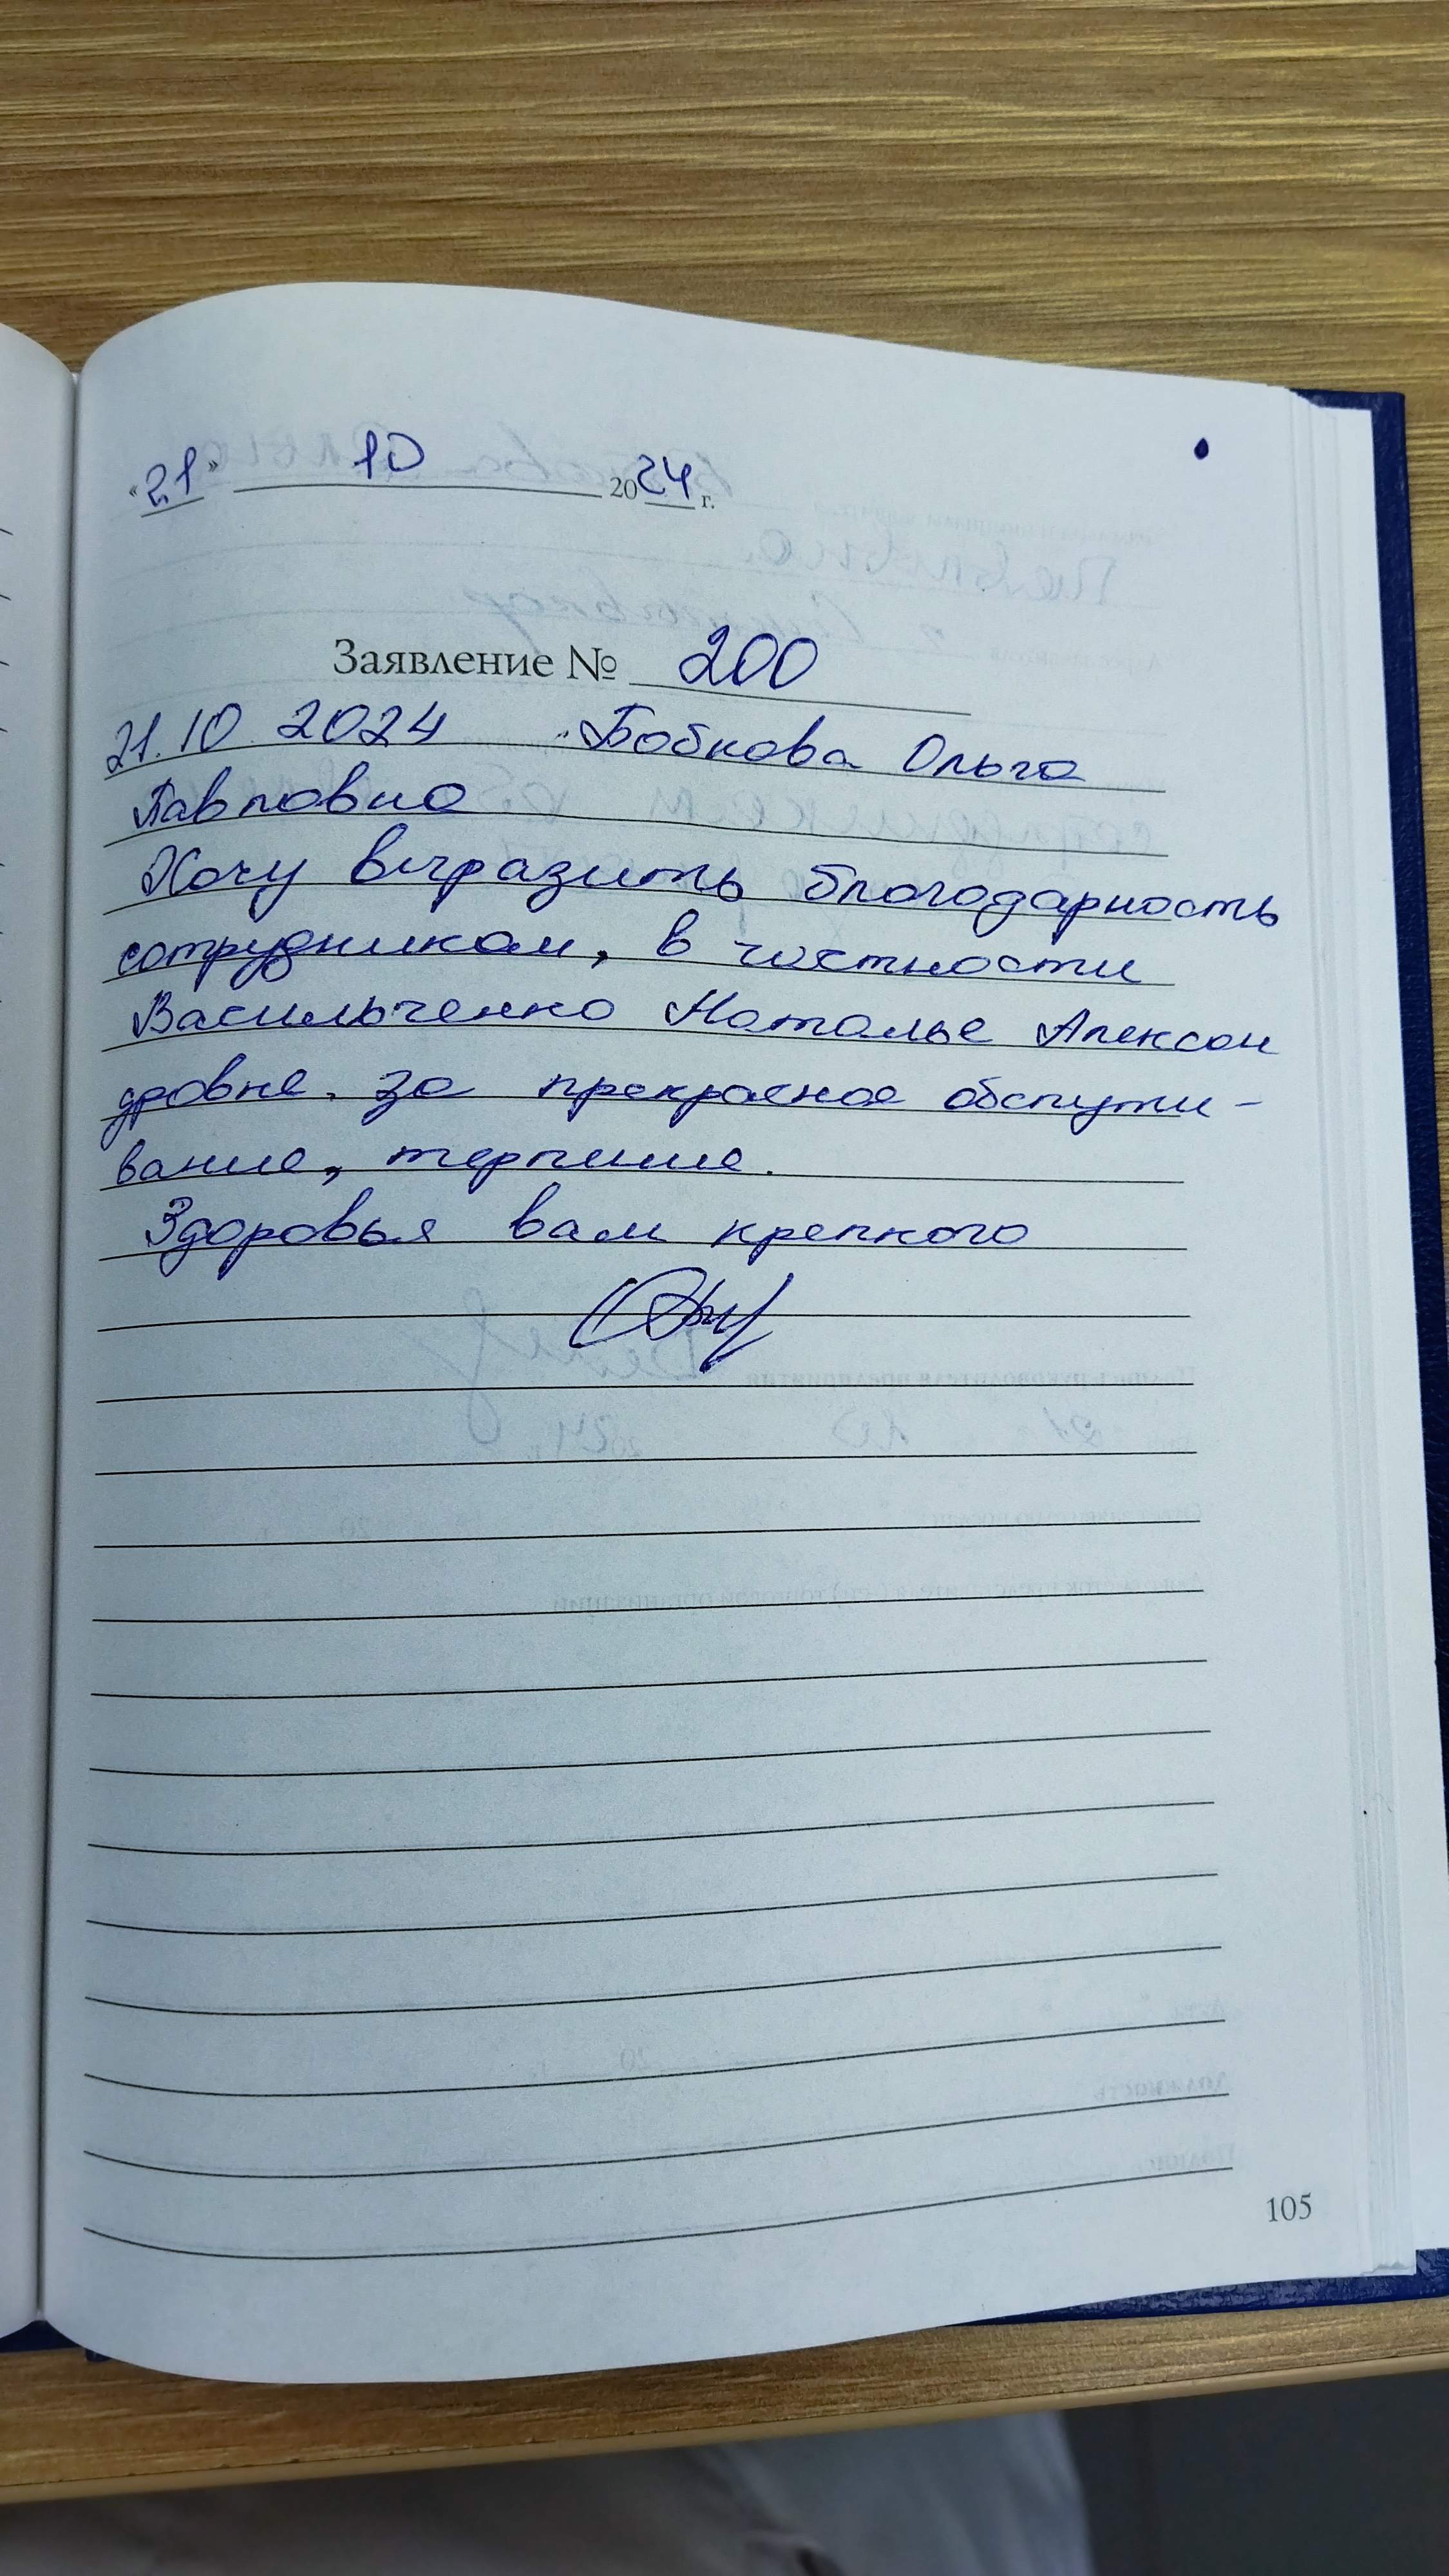 «21» 10 2024 г.
Заявление № 200
21.10.2024 Бобкова Ольга
Павловна
Хочу выразить благодарность
сотрудникам, в частности
Васильченко Наталье Алексан
дровне. за прекрасное обслужи-
вание, терпение.
Здоровья вам крепкого
105